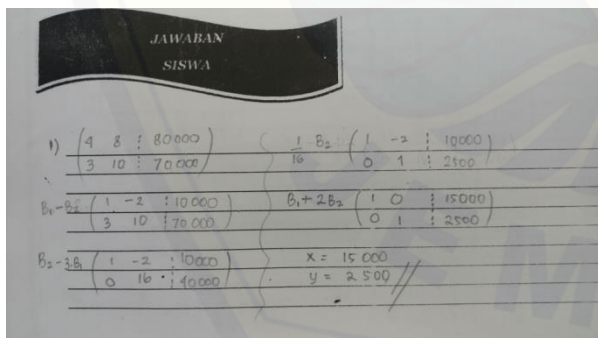 JAWABAN
SISWA
1) ( 4 8 ⋮ 80000 )
( 3 10 ⋮ 70 000 )
B₁-B₂ ( 1 -2 ⋮ 10 000 )
( 3 10 ⋮ 70 000 )
B₂-3B₁ ( 1 -2 ⋮ 10000 )
( 0 16 ⋮ 40000 )
1/16 B₂ ( 1 -2 ⋮ 10000 )
( 0 1 ⋮ 2500 )
B₁+2B₂ ( 1 0 ⋮ 15000 )
( 0 1 ⋮ 2500 )
x = 15 000
y = 2 500 //